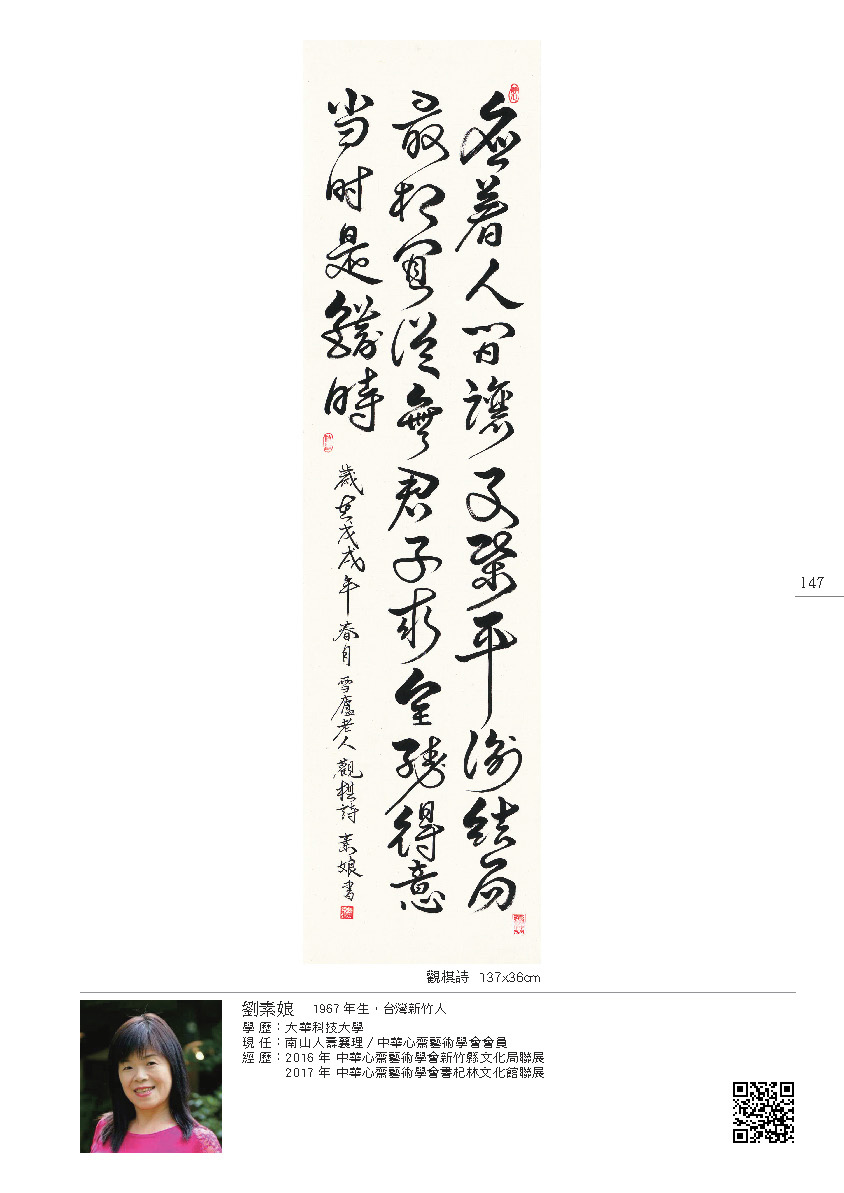 著人間讓棊平結局
最相宜從無君子求全勝得意
当时是時
歲在戊戌年 春月 雪廬老人 觀棋詩 素娘書
147
觀棋詩 137x36cm
劉素娘 1967 年生,台灣新竹人
學 歷:大華科技大學
現 任:南山人壽襄理 / 中華心齋藝術學會會員
經 歷:2016 年 中華心齋藝術學會新竹縣文化局聯展
2017 年 中華心齋藝術學會書杞林文化館聯展